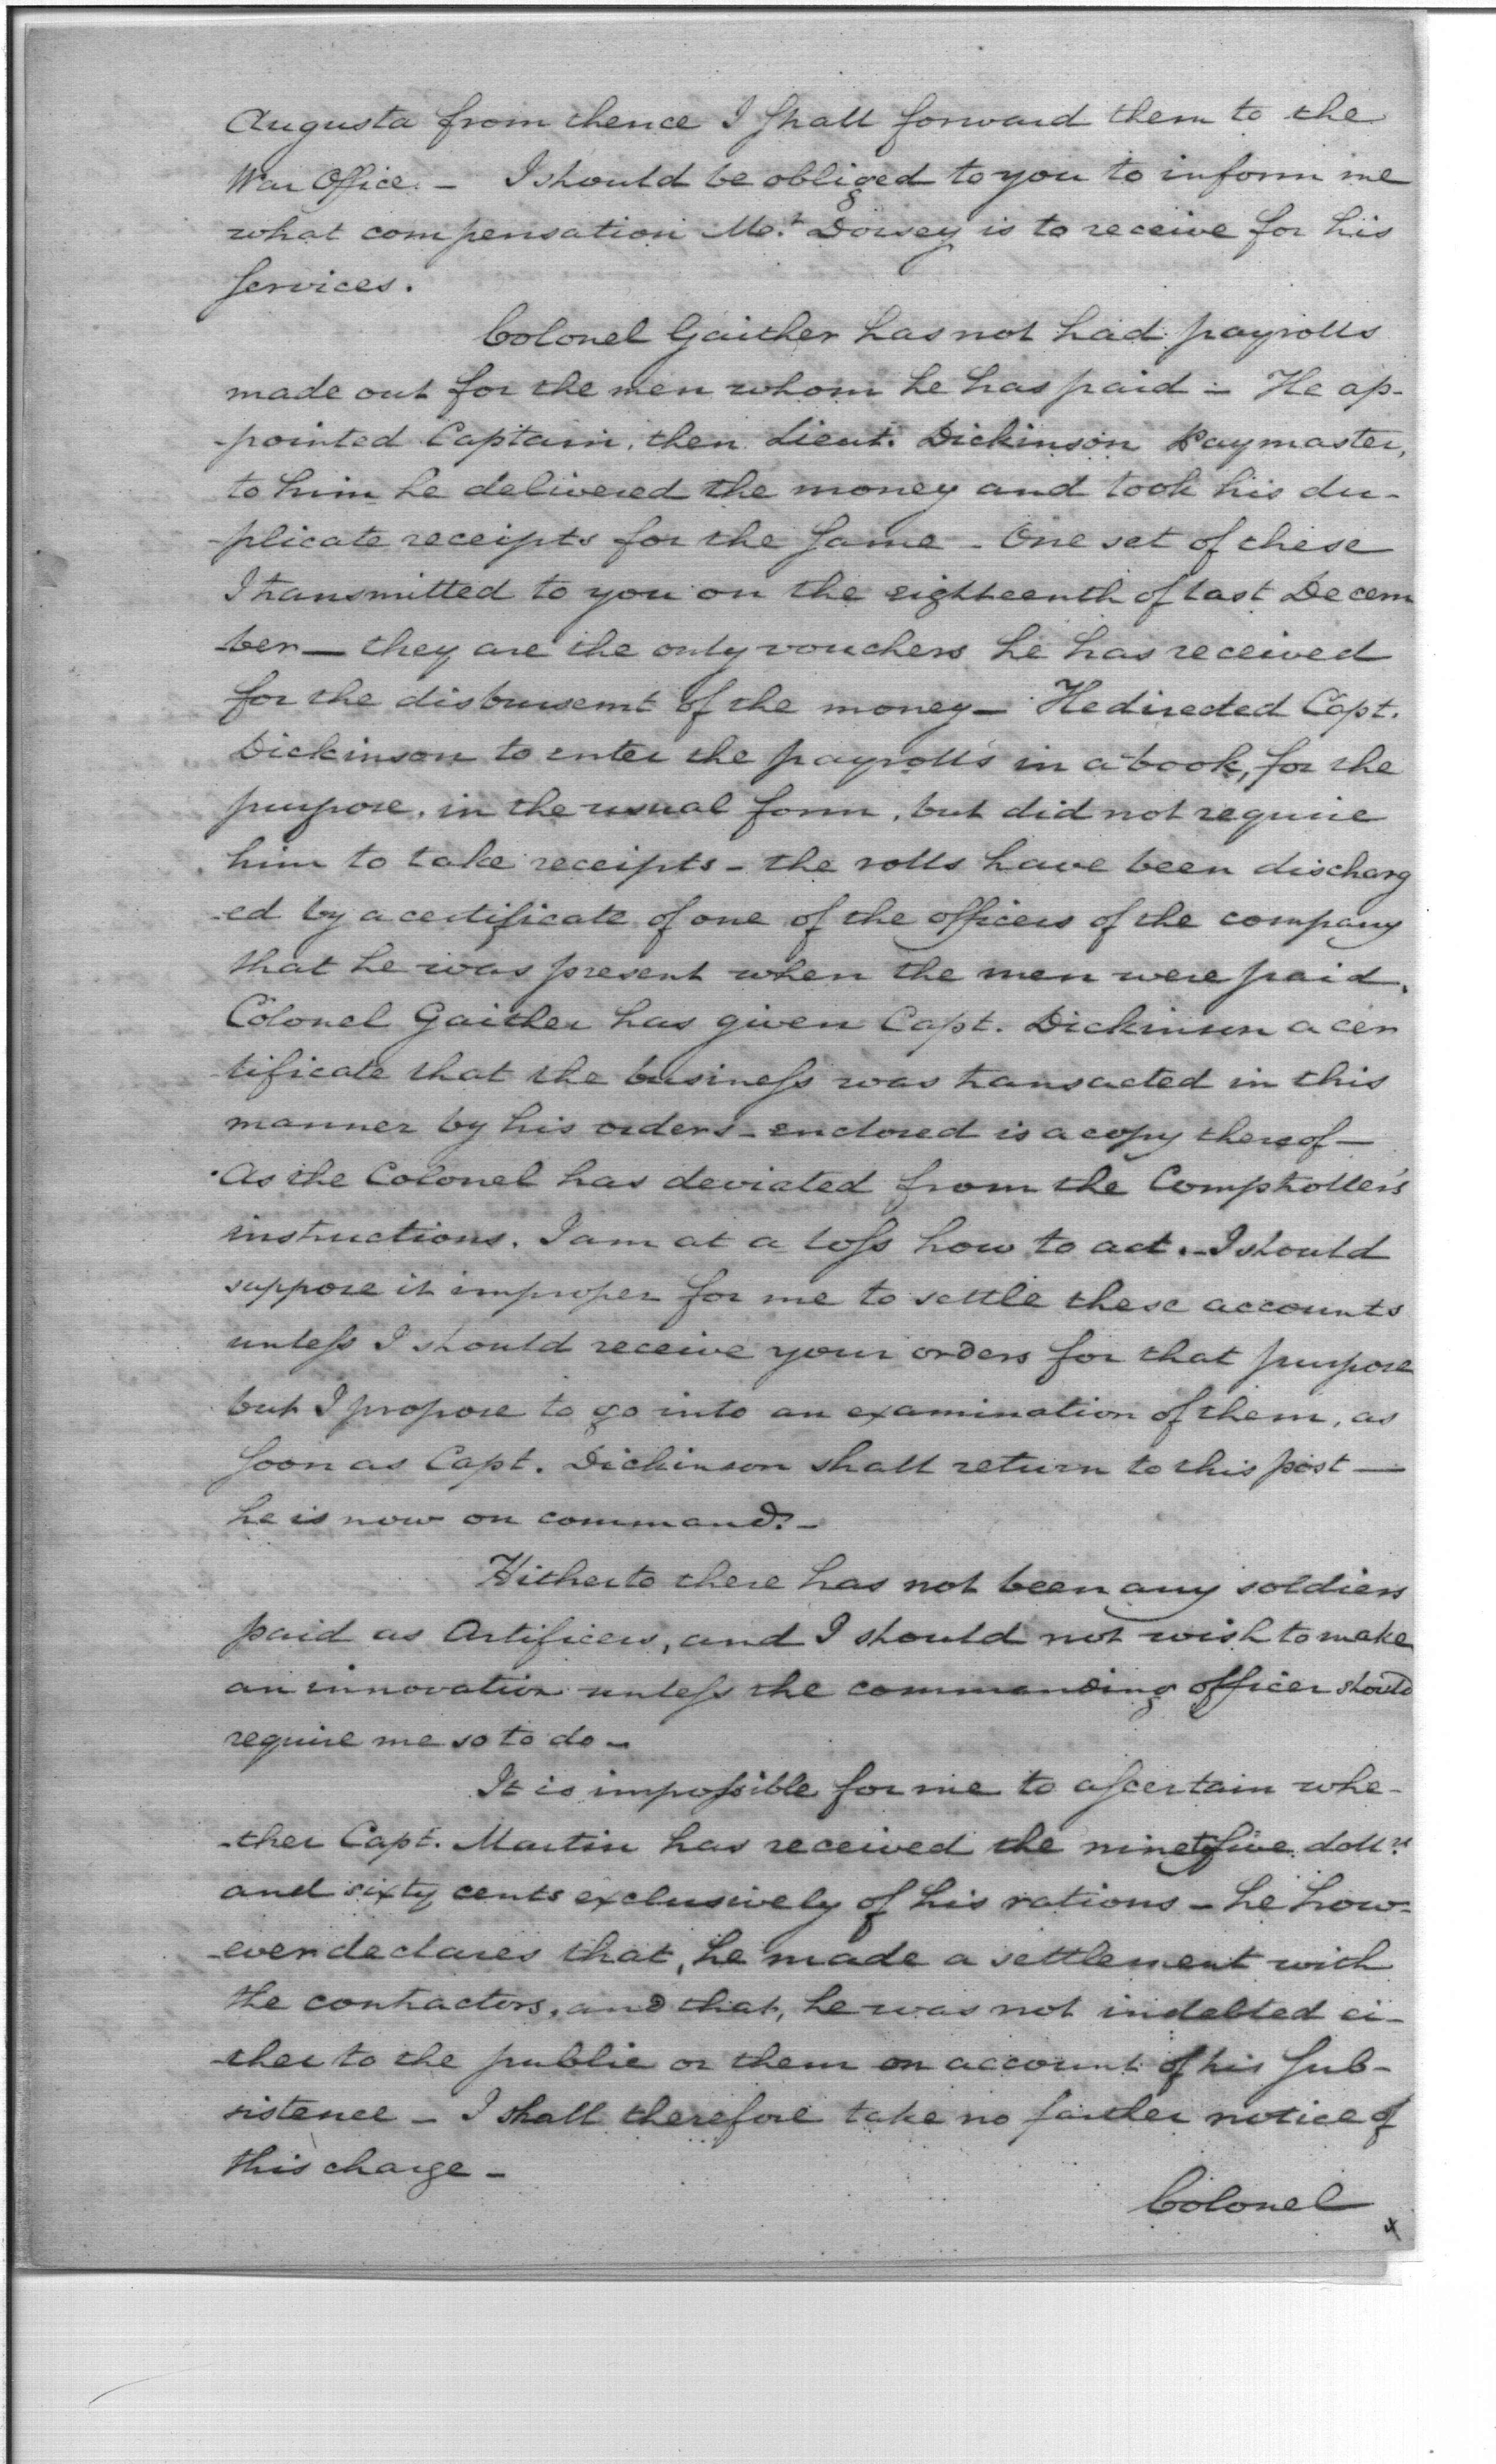 Augusta from thence I shall forward them to the
War Office. – I should be obliged to you to inform me
what compensation Mr. Dorsey is to receive for his
services.
Colonel Gaither has not had payrolls
made out for the men whom he has paid – He ap-
-pointed Captain, then Lieut. Dickinson Paymaster,
to him he delivered the money and took his du-
-plicate receipts for the same – One set of these
I transmitted to you on the eighteenth of last Decem
-ber — they are the only vouchers he has received
for the disbursemt of the money – He directed Capt.
Dickinson to enter the payrolls in a book, for the
purpose, in the usual form, but did not require
him to take receipts – the rolls have been discharg
-ed by a certificate of one of the officers of the company
that he was present when the men were paid.
Colonel Gaither has given Capt. Dickinson a cer
tificate that the business was transacted in this
manner by his orders – enclosed is a copy thereof –
As the Colonel has deviated from the Comptroller's
instructions. I am at a loss how to act. – I should
suppose it improper for me to settle these accounts
unless I should receive your orders for that purpose
but I propose to go into an examination of them, as
soon as Capt. Dickinson shall return to this post —
he is now on command. –
Hitherto there has not been any soldiers
paid as Artificers, and I should not wish to make
an innovation unless the commanding officer should
require me so to do –
It is impossible for me to ascertain whe-
-ther Capt. Martin has received the ninetyfive dollrs
and sixty cents exclusively of his rations – he how-
-ever declares that, he made a settlement with
the contractors, and that, he was not indebted ei-
-ther to the public or them on account of his sub-
sistence – I shall therefore take no farther notice of
this charge –
Colonel